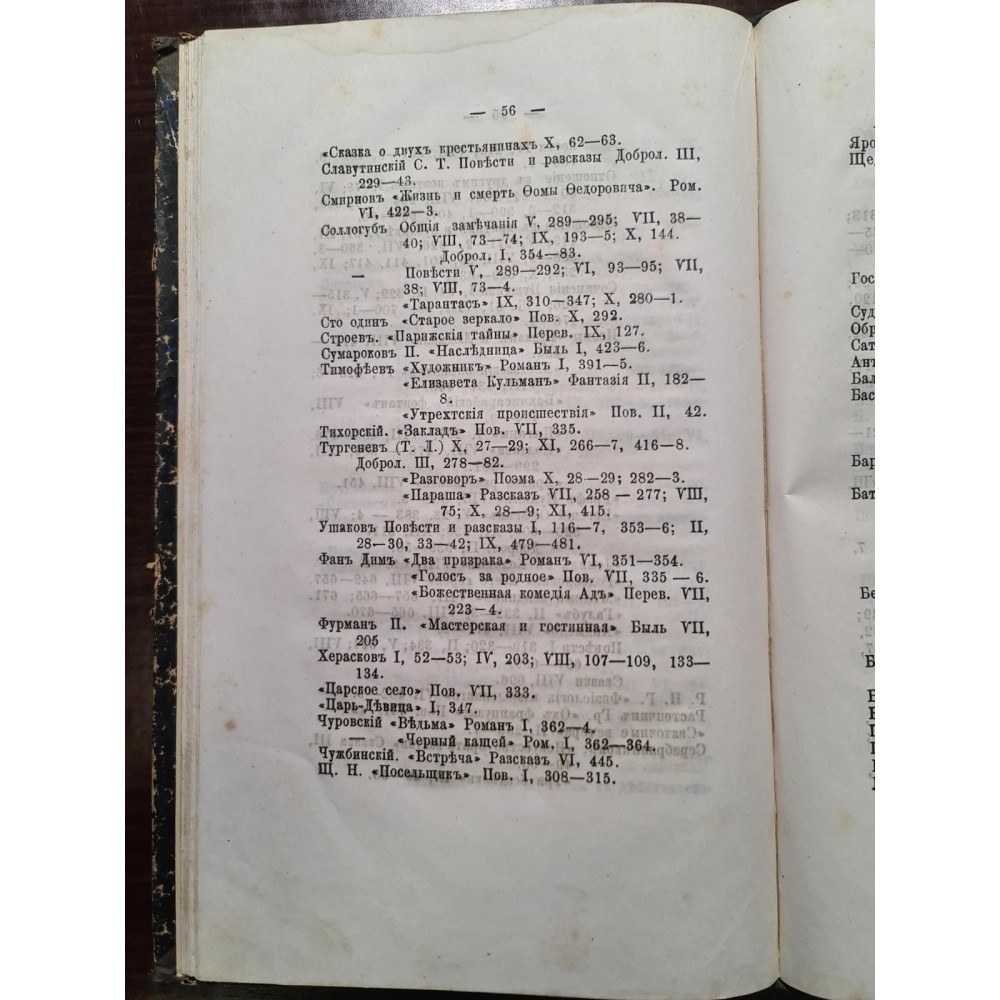 — 56 —
«Сказка о двухъ крестьянинахъ X, 62—63.
Славутинскій С. Т. Повѣсти и разсказы Доброл. III,
229—43.
Смирновъ «Жизнь и смерть Ѳомы Ѳедоровича». Ром.
VI, 422—3.
Соллогубъ Общія замѣчанія V, 289—295; VII, 38—
40; VIII, 73—74; IX, 193—5; X, 144.
Доброл. I, 354—83.
— Повѣсти V, 289—292; VI, 93—95; VII,
38; VIII, 73—4.
«Тарантасъ» IX, 310—347; X, 280—1.
Сто одинъ. «Старое зеркало» Пов. X, 292.
Строевъ. «Парижскія тайны» Перев. IX, 127.
Сумароков П. «Наслѣдница» Быль I, 423—6.
Тимофѣевъ «Художникъ» Романъ I, 391—5.
«Елизавета Кульманъ» Фантазія II, 182—
8.
«Утрехтскія происшествія» Пов. II, 42.
Тихорскій. «Закладъ» Пов. VII, 335.
Тургеневъ (Т. Л.) X, 27—29; XI, 266—7, 416—8.
Доброл. III, 278—82.
«Разговоръ» Поэма X, 28—29; 282—3.
«Параша» Разсказъ VII, 258 — 277; VIII,
75; X, 28—9; XI, 415.
Ушаковъ Повѣсти и разсказы I, 116—7, 353—6; II,
28—30, 33—42; IX, 479—481.
Фанъ Димъ «Два призрака» Романъ VI, 351—354.
«Голосъ за родное» Пов. VII, 335 — 6.
«Божественная комедія Адъ» Перев. VII,
223—4.
Фурманъ П. «Мастерская и гостинная» Быль VII,
205
Херасковъ I, 52—53; IV, 203; VIII, 107—109, 133—
134.
«Царское село» Пов. VII, 333.
«Царь-Дѣвица» I, 347.
Чуровскій «Вѣдьма» Романъ I, 362—4.
— «Черный кащей» Ром. I, 362—364.
Чужбинскій. «Встрѣча» Разсказъ VI, 445.
Щ. Н. «Посельщикъ» Пов. I, 308—315.